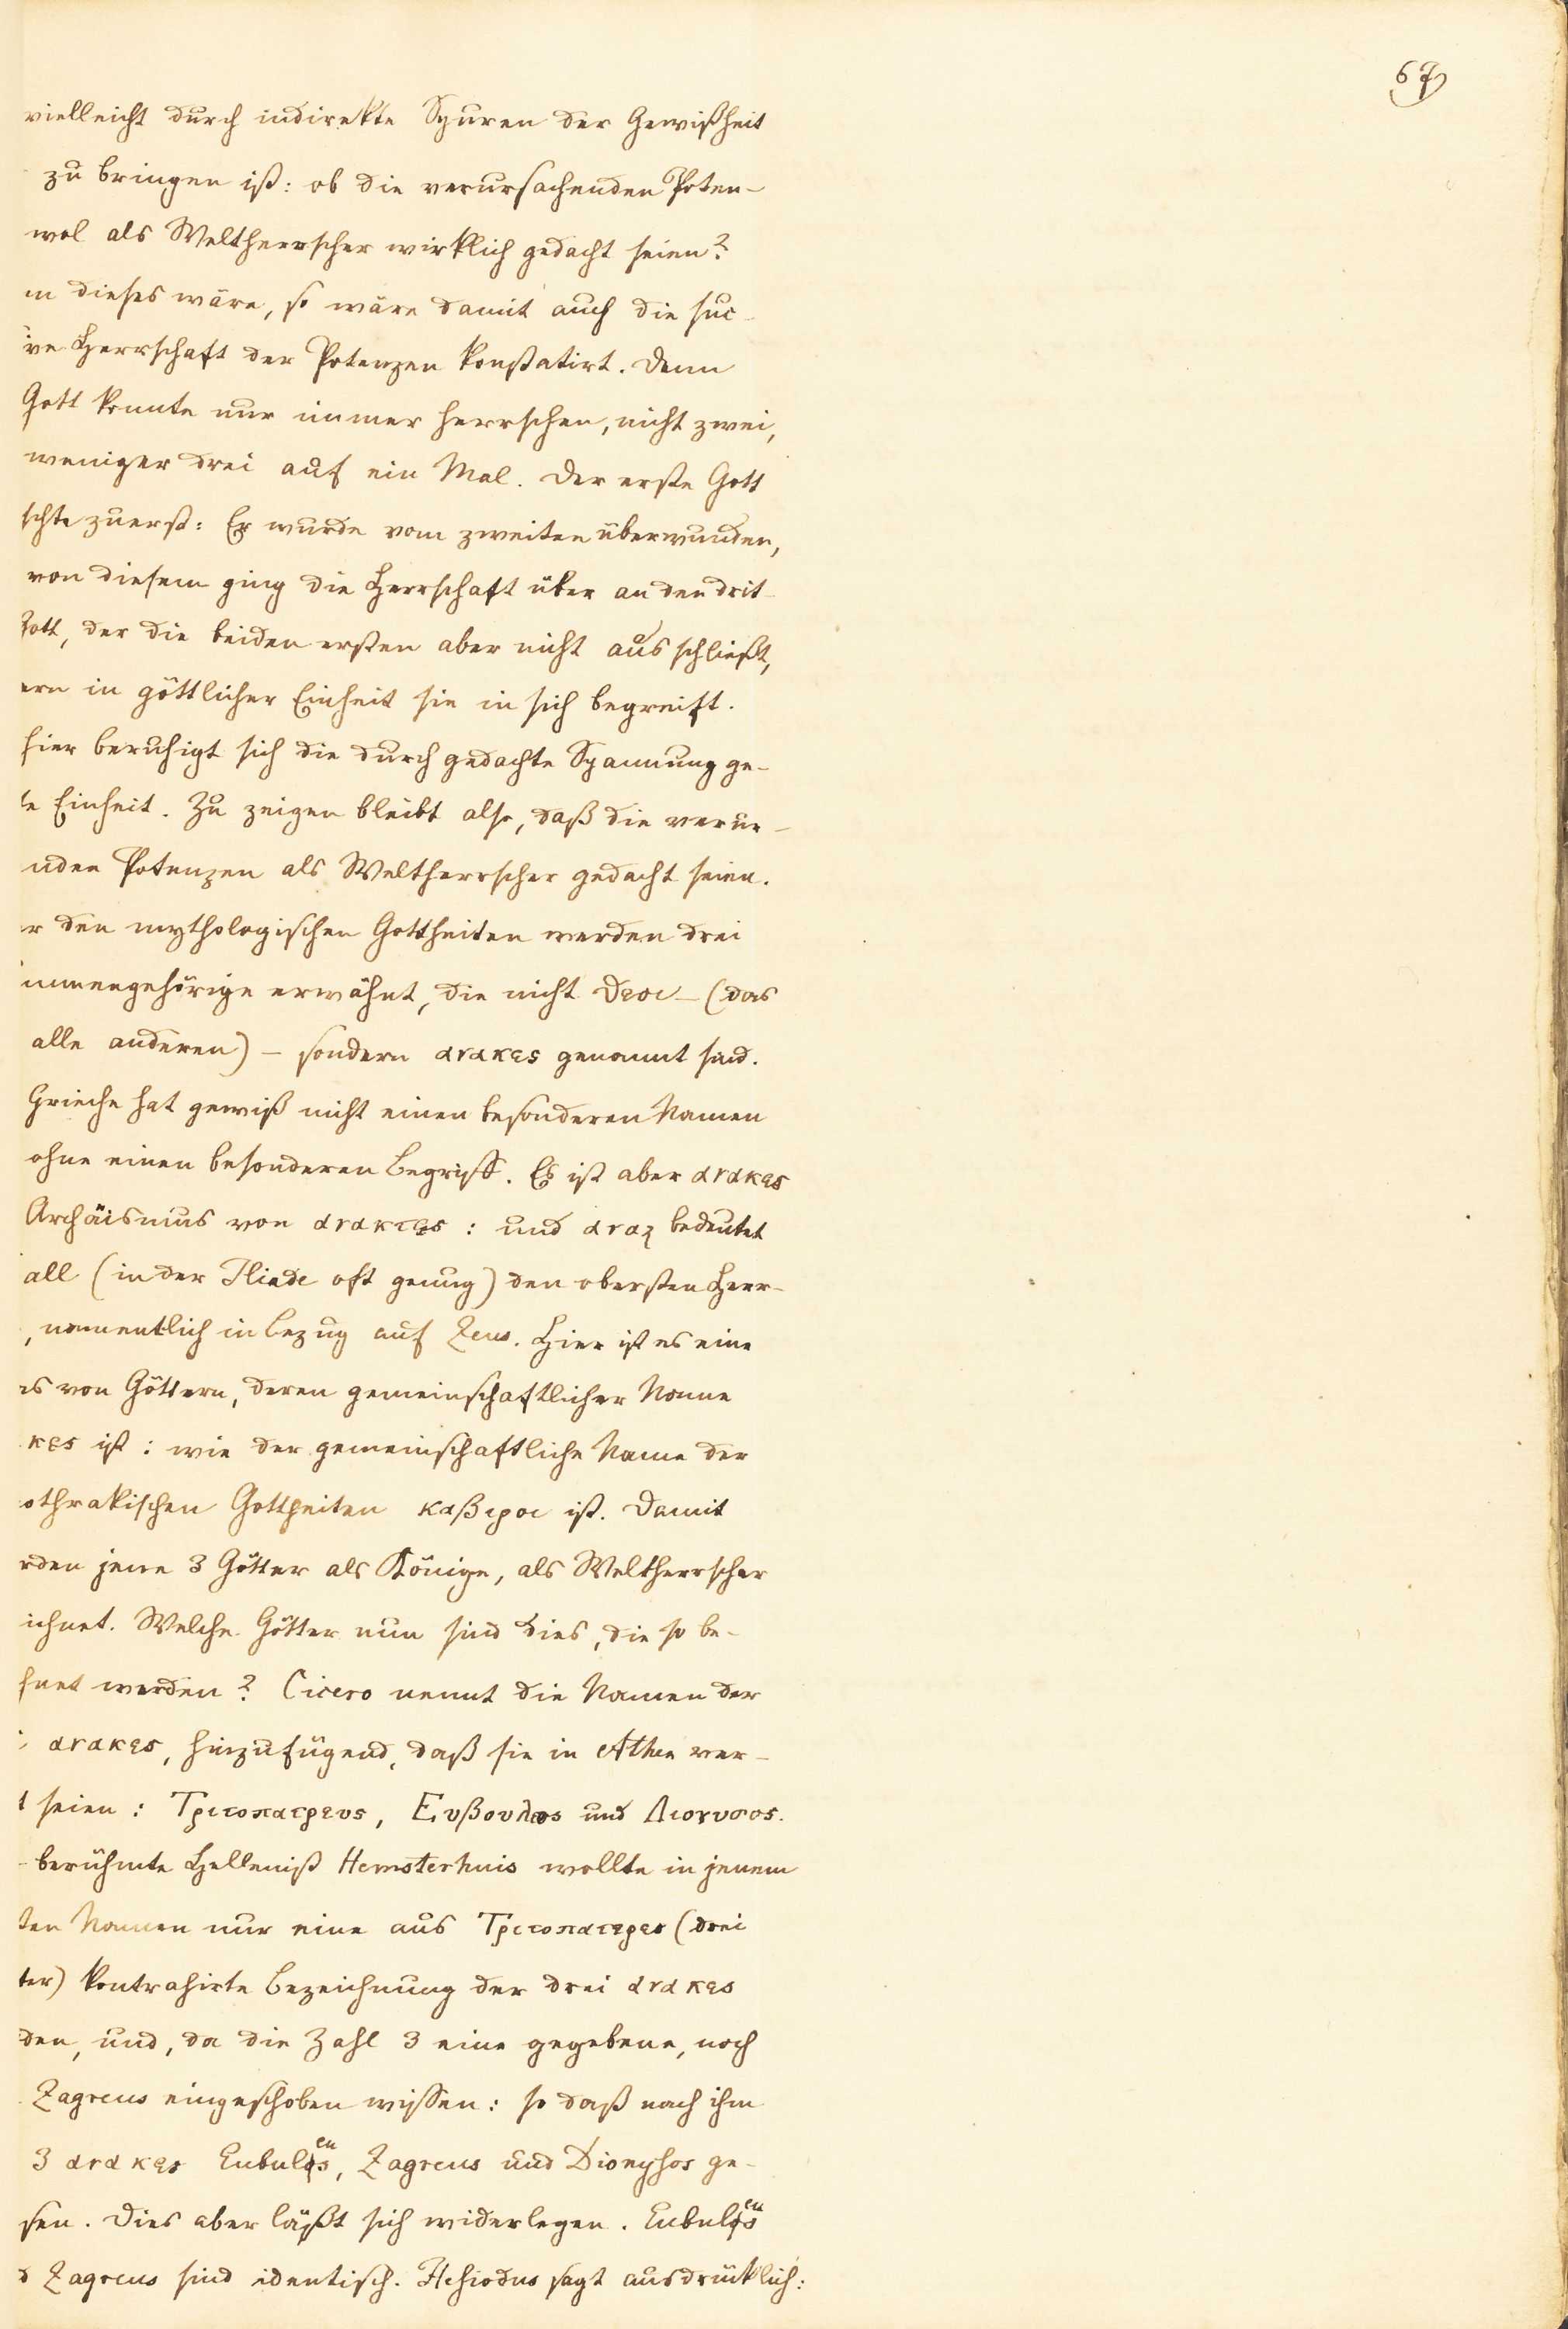 67
vielleicht durch indirekte Spuren der Gewißheit
zu bringen ist: ob die verursachenden Poten-
wol als Weltherrscher wirklich gedacht seien?
nn dieses wäre, so wäre damit auch die suc-
ive Herrschaft der Potenzen konstatirt. Denn
Gott konnte nur immer herrschen, nicht zwei,
weniger drei auf ein Mal. Der erste Gott
schte zuerst: Er wurde vom zweiten überwunden,
von diesem ging die Herrschaft über an den drit-
Gott, der die beiden ersten aber nicht aus schließt,
ern in göttlicher Einheit sie in sich begreift.
hier beruhigt sich die durch gedachte Spannung ge-
te Einheit. Zu zeigen bleibt also, daß die verur-
nden Potenzen als Weltherrscher gedacht seien.
r den mythologischen Gottheiten werden drei
mmengehörige erwähnt, die nicht θεοι – (das
alle anderen) – sondern ανακες genannt sind.
Grieche hat gewiß nicht einen besonderen Namen
ohne einen besonderen Begriff. Es ist aber ανακες
Archäismus von ανακτες: und αναξ bedeutet
all (in der Iliade oft genug) den obersten Herr-
, namentlich in Bezug auf Zeus. Hier ist es eine
es von Göttern, deren gemeinschaftlicher Name
κες ist: wie der gemeinschaftliche Name der
othrakischen Gottheiten καβειροι ist. Damit
rden jene 3 Götter als Könige, als Weltherrscher
ichnet. Welche Götter nun sind dies, die so be-
hnet werden? Cicero nennt die Namen der
i ανακες, hinzufügend, daß sie in Athen ver-
t seien: Τριτοπατρευς, Ευβουλεος und Διονυσος.
berühmte Hellenist Hemsterhuis wollte in jenem
ten Namen nur eine aus Τριτοπατερες (drei
ter) kontrahirte Bezeichnung der drei ανακες
den, und, da die Zahl 3 eine gegebene, noch
Zagreus eingeschoben wissen: so daß nach ihm
3 ανακες Eubuleus, Zagreus und Dionysos ge-
sen. Dies aber läßt sich widerlegen. Eubuleus
d Zagreus sind identisch. Hesiodus sagt ausdrücklich: